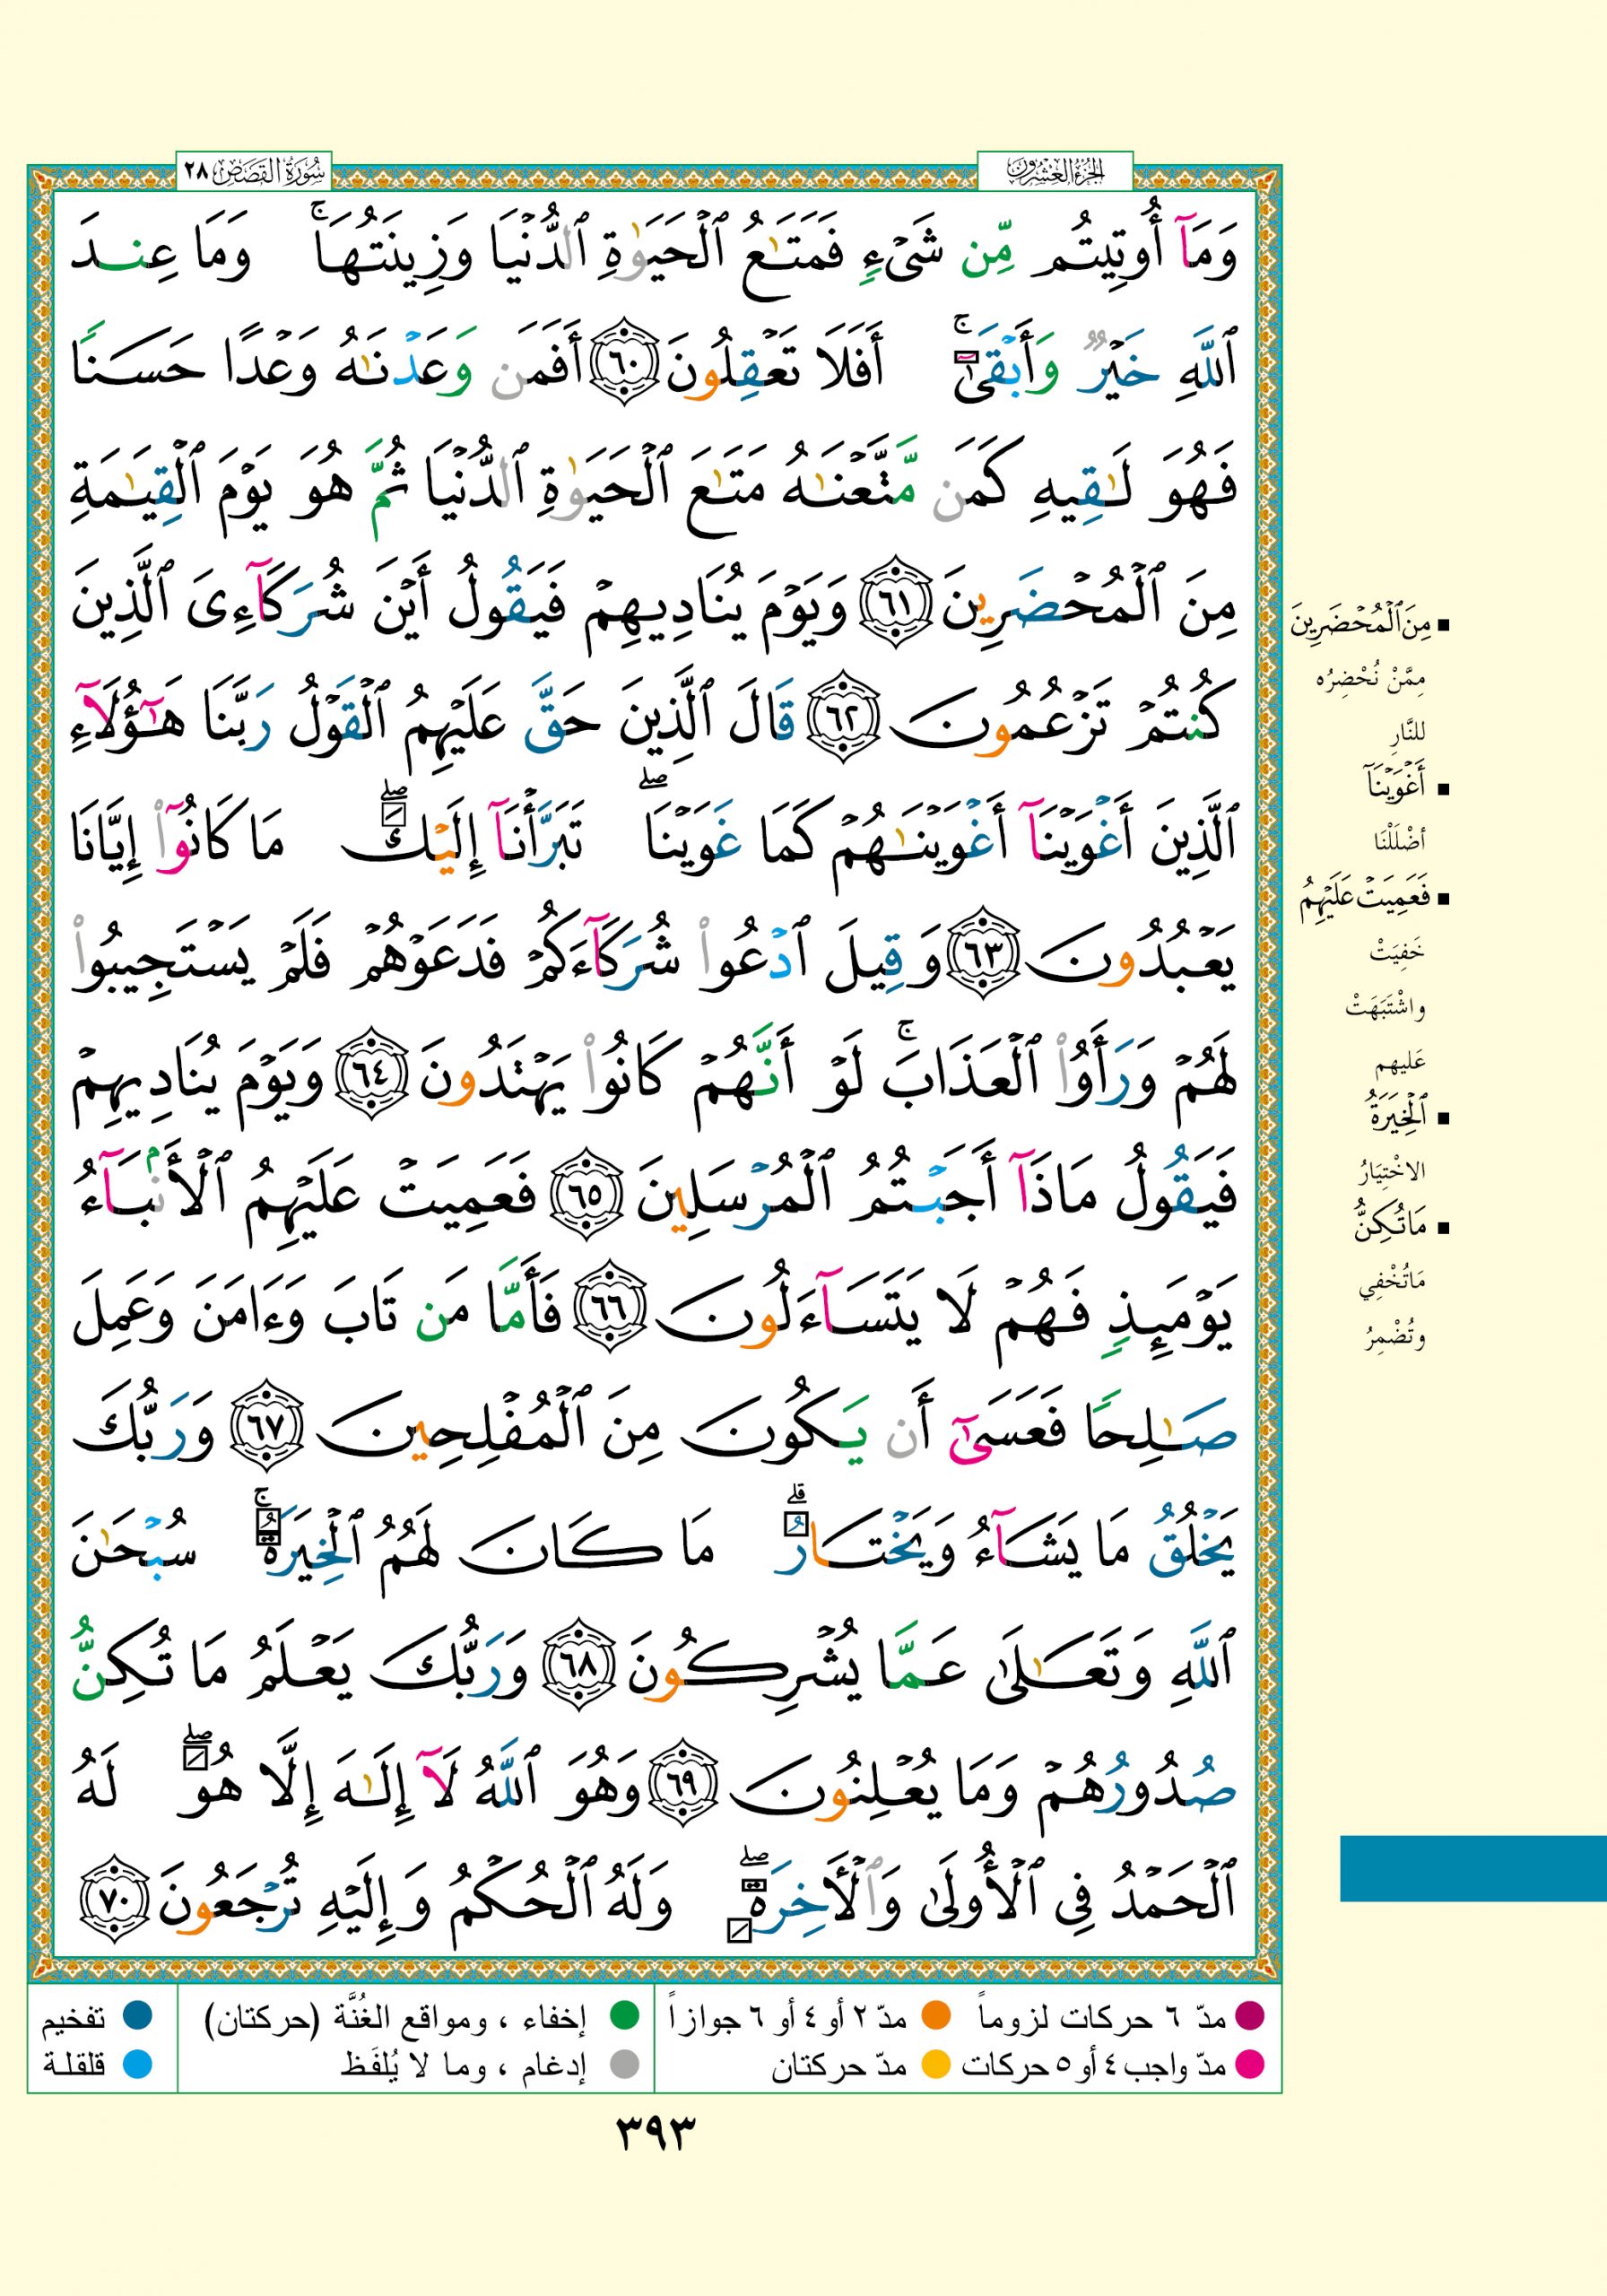 الجزء العشرون
سورة القصص ٢٨
وَمَآ أُوتِيتُم مِّن شَىْءٍ فَمَتَٰعُ ٱلْحَيَوٰةِ ٱلدُّنْيَا وَزِينَتُهَا ۚ وَمَا عِندَ
ٱللَّهِ خَيْرٌ وَأَبْقَىٰٓ ۚ أَفَلَا تَعْقِلُونَ ٦٠ أَفَمَن وَعَدْنَٰهُ وَعْدًا حَسَنًا
فَهُوَ لَٰقِيهِ كَمَن مَّتَّعْنَٰهُ مَتَٰعَ ٱلْحَيَوٰةِ ٱلدُّنْيَا ثُمَّ هُوَ يَوْمَ ٱلْقِيَٰمَةِ
مِنَ ٱلْمُحْضَرِينَ ٦١ وَيَوْمَ يُنَادِيهِمْ فَيَقُولُ أَيْنَ شُرَكَآءِىَ ٱلَّذِينَ
كُنتُمْ تَزْعُمُونَ ٦٢ قَالَ ٱلَّذِينَ حَقَّ عَلَيْهِمُ ٱلْقَوْلُ رَبَّنَا هَٰٓؤُلَآءِ
ٱلَّذِينَ أَغْوَيْنَآ أَغْوَيْنَٰهُمْ كَمَا غَوَيْنَا ۖ تَبَرَّأْنَآ إِلَيْكَ ۖ مَا كَانُوٓا۟ إِيَّانَا
يَعْبُدُونَ ٦٣ وَقِيلَ ٱدْعُوا۟ شُرَكَآءَكُمْ فَدَعَوْهُمْ فَلَمْ يَسْتَجِيبُوا۟
لَهُمْ وَرَأَوُا۟ ٱلْعَذَابَ ۚ لَوْ أَنَّهُمْ كَانُوا۟ يَهْتَدُونَ ٦٤ وَيَوْمَ يُنَادِيهِمْ
فَيَقُولُ مَاذَآ أَجَبْتُمُ ٱلْمُرْسَلِينَ ٦٥ فَعَمِيَتْ عَلَيْهِمُ ٱلْأَنۢبَآءُ
يَوْمَئِذٍ فَهُمْ لَا يَتَسَآءَلُونَ ٦٦ فَأَمَّا مَن تَابَ وَءَامَنَ وَعَمِلَ
صَٰلِحًا فَعَسَىٰٓ أَن يَكُونَ مِنَ ٱلْمُفْلِحِينَ ٦٧ وَرَبُّكَ
يَخْلُقُ مَا يَشَآءُ وَيَخْتَارُ ۗ مَا كَانَ لَهُمُ ٱلْخِيَرَةُ ۚ سُبْحَٰنَ
ٱللَّهِ وَتَعَٰلَىٰ عَمَّا يُشْرِكُونَ ٦٨ وَرَبُّكَ يَعْلَمُ مَا تُكِنُّ
صُدُورُهُمْ وَمَا يُعْلِنُونَ ٦٩ وَهُوَ ٱللَّهُ لَآ إِلَٰهَ إِلَّا هُوَ ۖ لَهُ
ٱلْحَمْدُ فِى ٱلْأُولَىٰ وَٱلْءَاخِرَةِ ۖ وَلَهُ ٱلْحُكْمُ وَإِلَيْهِ تُرْجَعُونَ ٧٠
مِنَ ٱلْمُحْضَرِينَ
مِمَّنْ نُحْضِرُه
للنَّارِ
أَغْوَيْنَآ
أضْلَلْنَا
فَعَمِيَتْ عَلَيْهِمُ
خَفِيَتْ
واشْتَبَهَتْ
عَليهم
ٱلْخِيَرَةُ
الاخْتِيَارُ
مَا تُكِنُّ
مَا تُخْفِي
وتُضْمِرُ
مدّ ٦ حركات لزوماً
مدّ ٢ أو ٤ أو ٦ جوازاً
إخفاء ، ومواقع الغُنَّة (حركتان)
تفخيم
مدّ واجب ٤ أو ٥ حركات
مدّ حركتان
إدغام ، وما لا يُلفَظ
قلقلة
٣٩٣